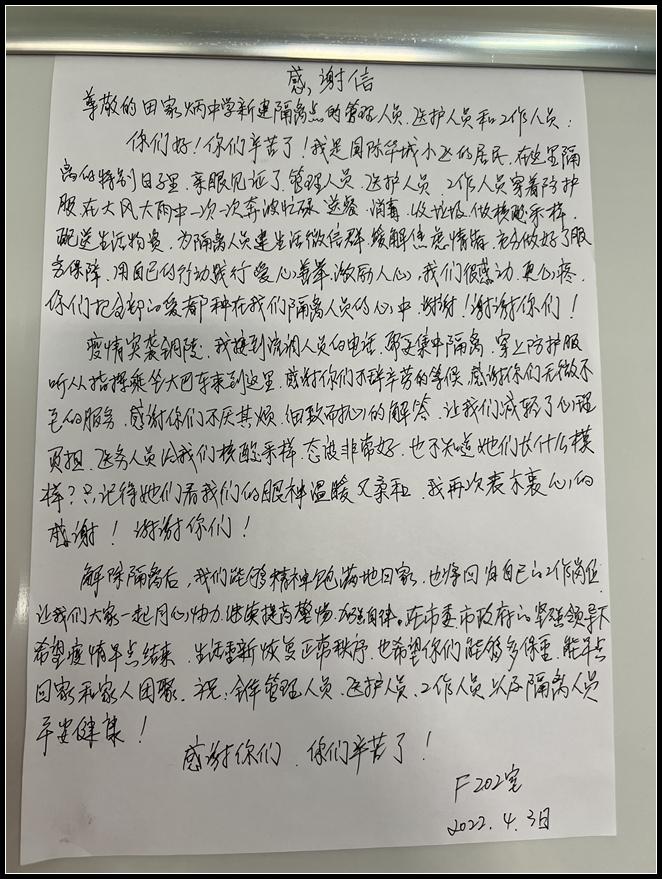 感谢信
尊敬的田家炳中学新建隔离点的管理人员、医护人员和工作人员：
你们好！你们辛苦了！我是国际华城小区的居民，在这里隔
离的特别日子里，亲眼见证了管理人员、医护人员、工作人员穿着防护
服，在大风大雨中一次一次奔波忙碌，送餐、消毒、收垃圾、做核酸采样、
配送生活物资，为隔离人员建生活微信群，缓解焦虑情绪，充分做好了服
务保障，用自己的行动践行爱心善举，激励人心，我们很感动，更心疼。
你们把全部的爱都种在我们隔离人员的心中，谢谢！谢谢你们！
疫情突袭铜陵，我接到流调人员的电话，需要集中隔离，穿上防护服
听从指挥乘坐大巴车来到这里，感谢你们不辞辛苦的等候，感谢你们无微不
至的服务，感谢你们不厌其烦，细致而的解答，让我们减轻了心理
负担，医务人员给我们核酸采样，态度非常好，也不知道她们长什么模
样？只记得她们看我们的眼神温暖又亲和，我再次表示衷心的
感谢！谢谢你们！
解除隔离后，我们能够精神饱满地回家，也将回自己的工作岗位，
让我们大家一起同心协力，继续提高警惕，加强自律。在市委市政府的坚强领导下
希望疫情早点结束，生活重新恢复正常秩序，也希望你们能够多保重，能早点
回家和家人团聚，祝：全体管理人员、医护人员、工作人员以及隔离人员
平安健康！
感谢你们、你们辛苦了！
F202室
2022.4.3日